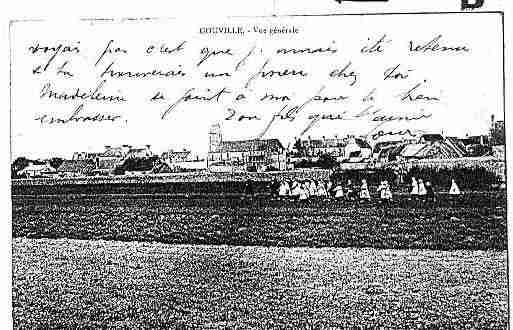 GOUVILLE. - Vue générale
voyais pas c'est que j'aurais été retenu
si tu trouverais un chez toi
Madeleine se joint à moi pour te bien
embrasser. Ton fils qui t'aime
B